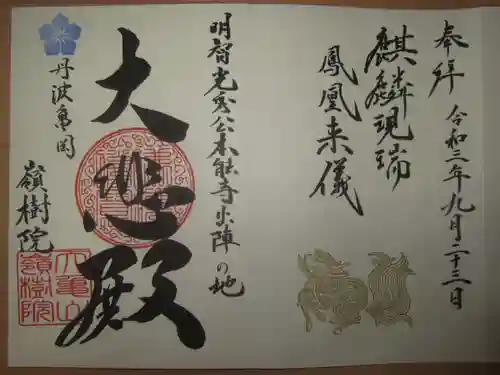 奉拝
令和三年九月二十三日
麒麟現瑞
鳳凰来儀
明智光秀公本能寺出陣の地
大悲殿
丹波亀岡
嶺樹院
大亀山
嶺樹院